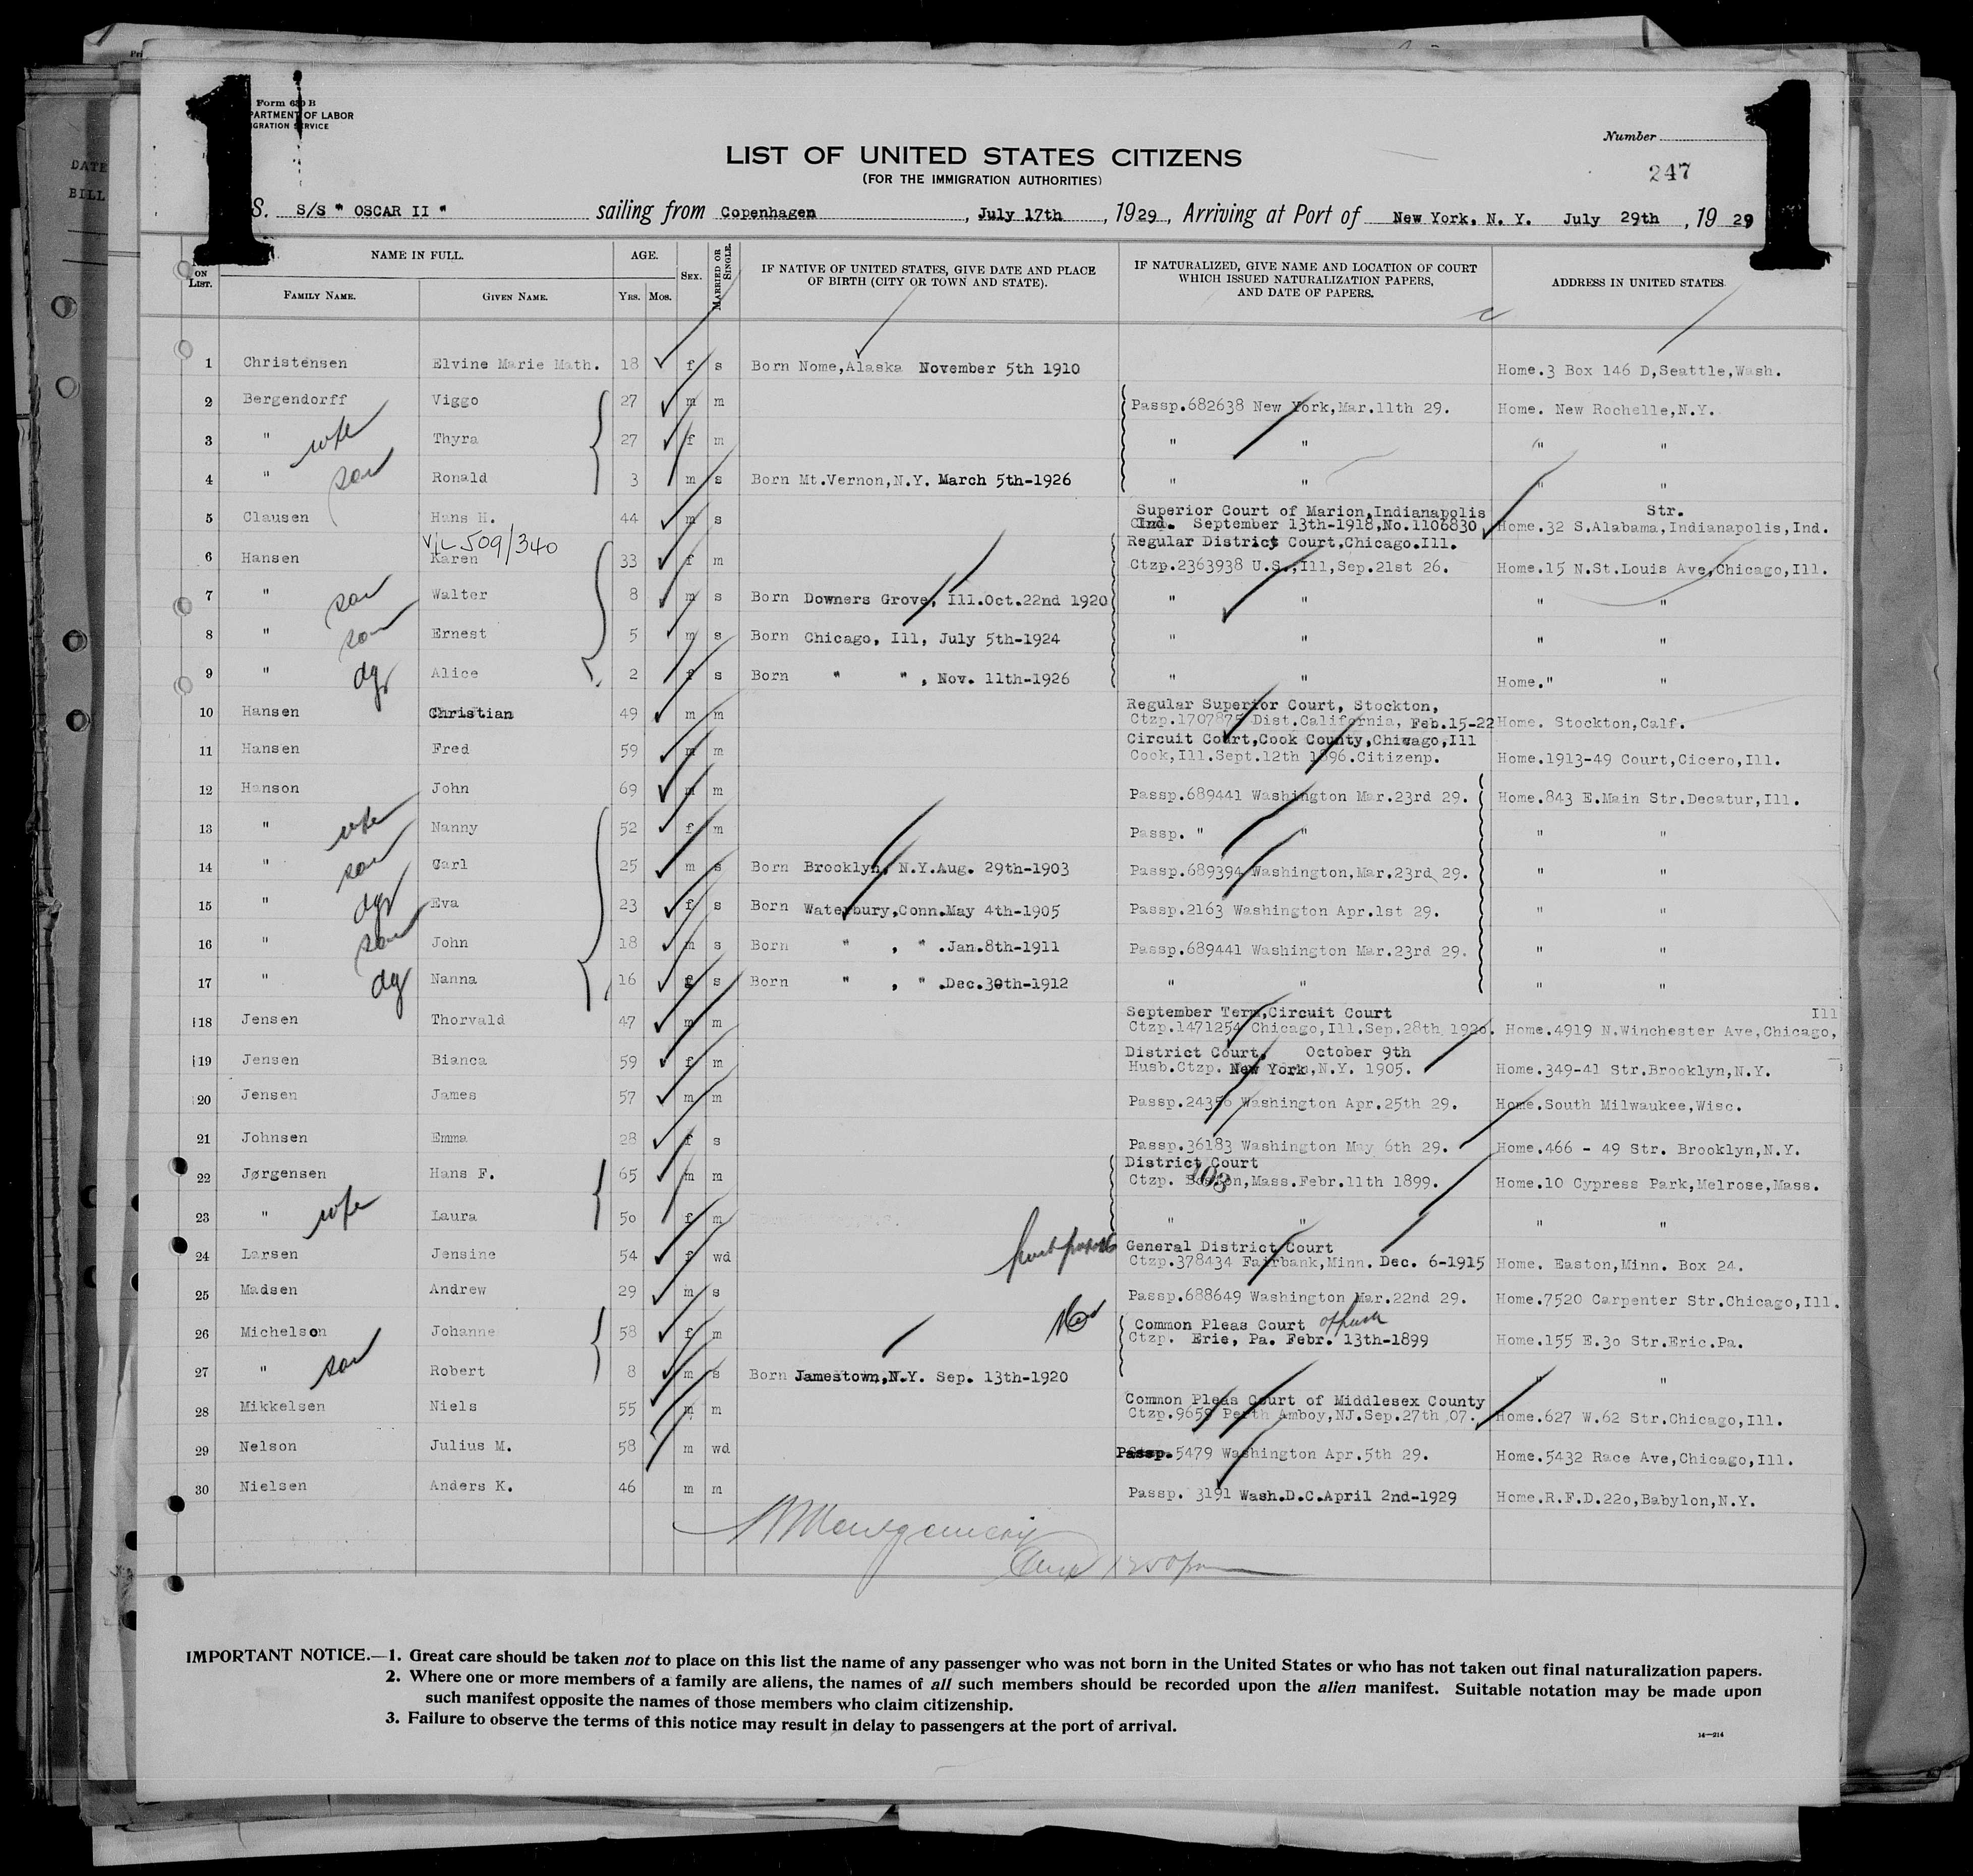 1
1
Form 630 B
DEPARTMENT OF LABOR
IMMIGRATION SERVICE
Number
247
LIST OF UNITED STATES CITIZENS
(FOR THE IMMIGRATION AUTHORITIES)
S. S/S " OSCAR II " sailing from Copenhagen, July 17th, 1929, Arriving at Port of New York, N. Y. July 29th, 1929
DATE
BILL
ON LIST. NAME IN FULL. FAMILY NAME. GIVEN NAME. AGE. YRS. MOS. SEX. MARRIED OR SINGLE. IF NATIVE OF UNITED STATES, GIVE DATE AND PLACE OF BIRTH (CITY OR TOWN AND STATE). IF NATURALIZED, GIVE NAME AND LOCATION OF COURT WHICH ISSUED NATURALIZATION PAPERS, AND DATE OF PAPERS. ADDRESS IN UNITED STATES
1 Christensen Elvine Marie Math. 18 f s Born Nome,Alaska November 5th 1910 Home.3 Box 146 D,Seattle,Wash.
2 Bergendorff Viggo 27 m m Passp.682638 New York,Mar.11th 29. Home. New Rochelle,N.Y.
3 " wife Thyra 27 f m " " " "
4 " son Ronald 3 m s Born Mt.Vernon,N.Y. March 5th-1926 " " " "
Superior Court of Marion,Indianapolis Str.
5 Clausen Hans H. 44 m s Ind. September 13th-1918,No.1106830 Home.32 S.Alabama,Indianapolis,Ind.
509/340 Regular District Court,Chicago.Ill.
6 Hansen Karen 33 f m Ctzp.2363938 U.S.,Ill,Sep.21st 26. Home.15 N.St.Louis Ave,Chicago,Ill.
7 " son Walter 8 m s Born Downers Grove, Ill.Oct.22nd 1920 " " " "
8 " son Ernest 5 m s Born Chicago, Ill, July 5th-1924 " " " "
9 " dgr Alice 2 f s Born " " , Nov. 11th-1926 " " Home." "
Regular Superior Court, Stockton,
10 Hansen Christian 49 m m Ctzp.1707875 Dist.California, Feb.15-22 Home. Stockton,Calf.
Circuit Court,Cook County,Chicago,Ill
11 Hansen Fred 59 m m Cook,Ill.Sept.12th 1896.Citizenp. Home.1913-49 Court,Cicero,Ill.
12 Hanson John 69 m m Passp.689441 Washington Mar.23rd 29. Home.843 E.Main Str.Decatur,Ill.
13 " wife Nanny 52 f m Passp. " " " "
14 " son Carl 25 m s Born Brooklyn, N.Y.Aug. 29th-1903 Passp.689394 Washington,Mar.23rd 29. " "
15 " dgr Eva 23 f s Born Waterbury,Conn.May 4th-1905 Passp.2163 Washington Apr.1st 29. " "
16 " son John 18 m s Born " , " .Jan.8th-1911 Passp.689441 Washington Mar.23rd 29. " "
17 " dg Nanna 16 f s Born " , " .Dec.30th-1912 " " " "
September Term,Circuit Court Ill
18 Jensen Thorvald 47 m m Ctzp.1471254 Chicago,Ill.Sep.28th 1920. Home.4919 N.Winchester Ave,Chicago,
District Court, October 9th
19 Jensen Bianca 59 f m Husb.Ctzp. New York,N.Y. 1905. Home.349-41 Str.Brooklyn,N.Y.
20 Jensen James 57 m m Passp.24356 Washington Apr.25th 29. Home.South Milwaukee,Wisc.
21 Johnsen Emma 28 f s Passp.36183 Washington May 6th 29. Home.466 - 49 Str. Brooklyn,N.Y.
District Court
22 Jørgensen Hans F. 65 m m Ctzp. Boston,Mass.Febr.11th 1899. Home.10 Cypress Park,Melrose,Mass.
23 " wife Laura 50 f m " " " "
General District Court
24 Larsen Jensine 54 f wd Ctzp.378434 Fairbank,Minn. Dec. 6-1915 Home. Easton,Minn. Box 24.
25 Madsen Andrew 29 m s Passp.688649 Washington Mar.22nd 29. Home.7520 Carpenter Str.Chicago,Ill.
Common Pleas Court
26 Michelson Johanne 58 f m Ctzp. Erie, Pa. Febr. 13th-1899 Home.155 E.30 Str.Eric.Pa.
27 " son Robert 8 m s Born Jamestown,N.Y. Sep. 13th-1920 " "
Common Pleas Court of Middlesex County
28 Mikkelsen Niels 55 m m Ctzp.9659 Perth Amboy,NJ.Sep.27th 07. Home.627 W.62 Str.Chicago,Ill.
29 Nelson Julius M. 58 m wd Passp.5479 Washington Apr.5th 29. Home.5432 Race Ave,Chicago,Ill.
30 Nielsen Anders K. 46 m m Passp. 3191 Wash.D.C.April 2nd-1929 Home.R.F.D.220,Babylon,N.Y.
Montgomery
IMPORTANT NOTICE.—1. Great care should be taken not to place on this list the name of any passenger who was not born in the United States or who has not taken out final naturalization papers.
2. Where one or more members of a family are aliens, the names of all such members should be recorded upon the alien manifest. Suitable notation may be made upon
such manifest opposite the names of those members who claim citizenship.
3. Failure to observe the terms of this notice may result in delay to passengers at the port of arrival.
14—214